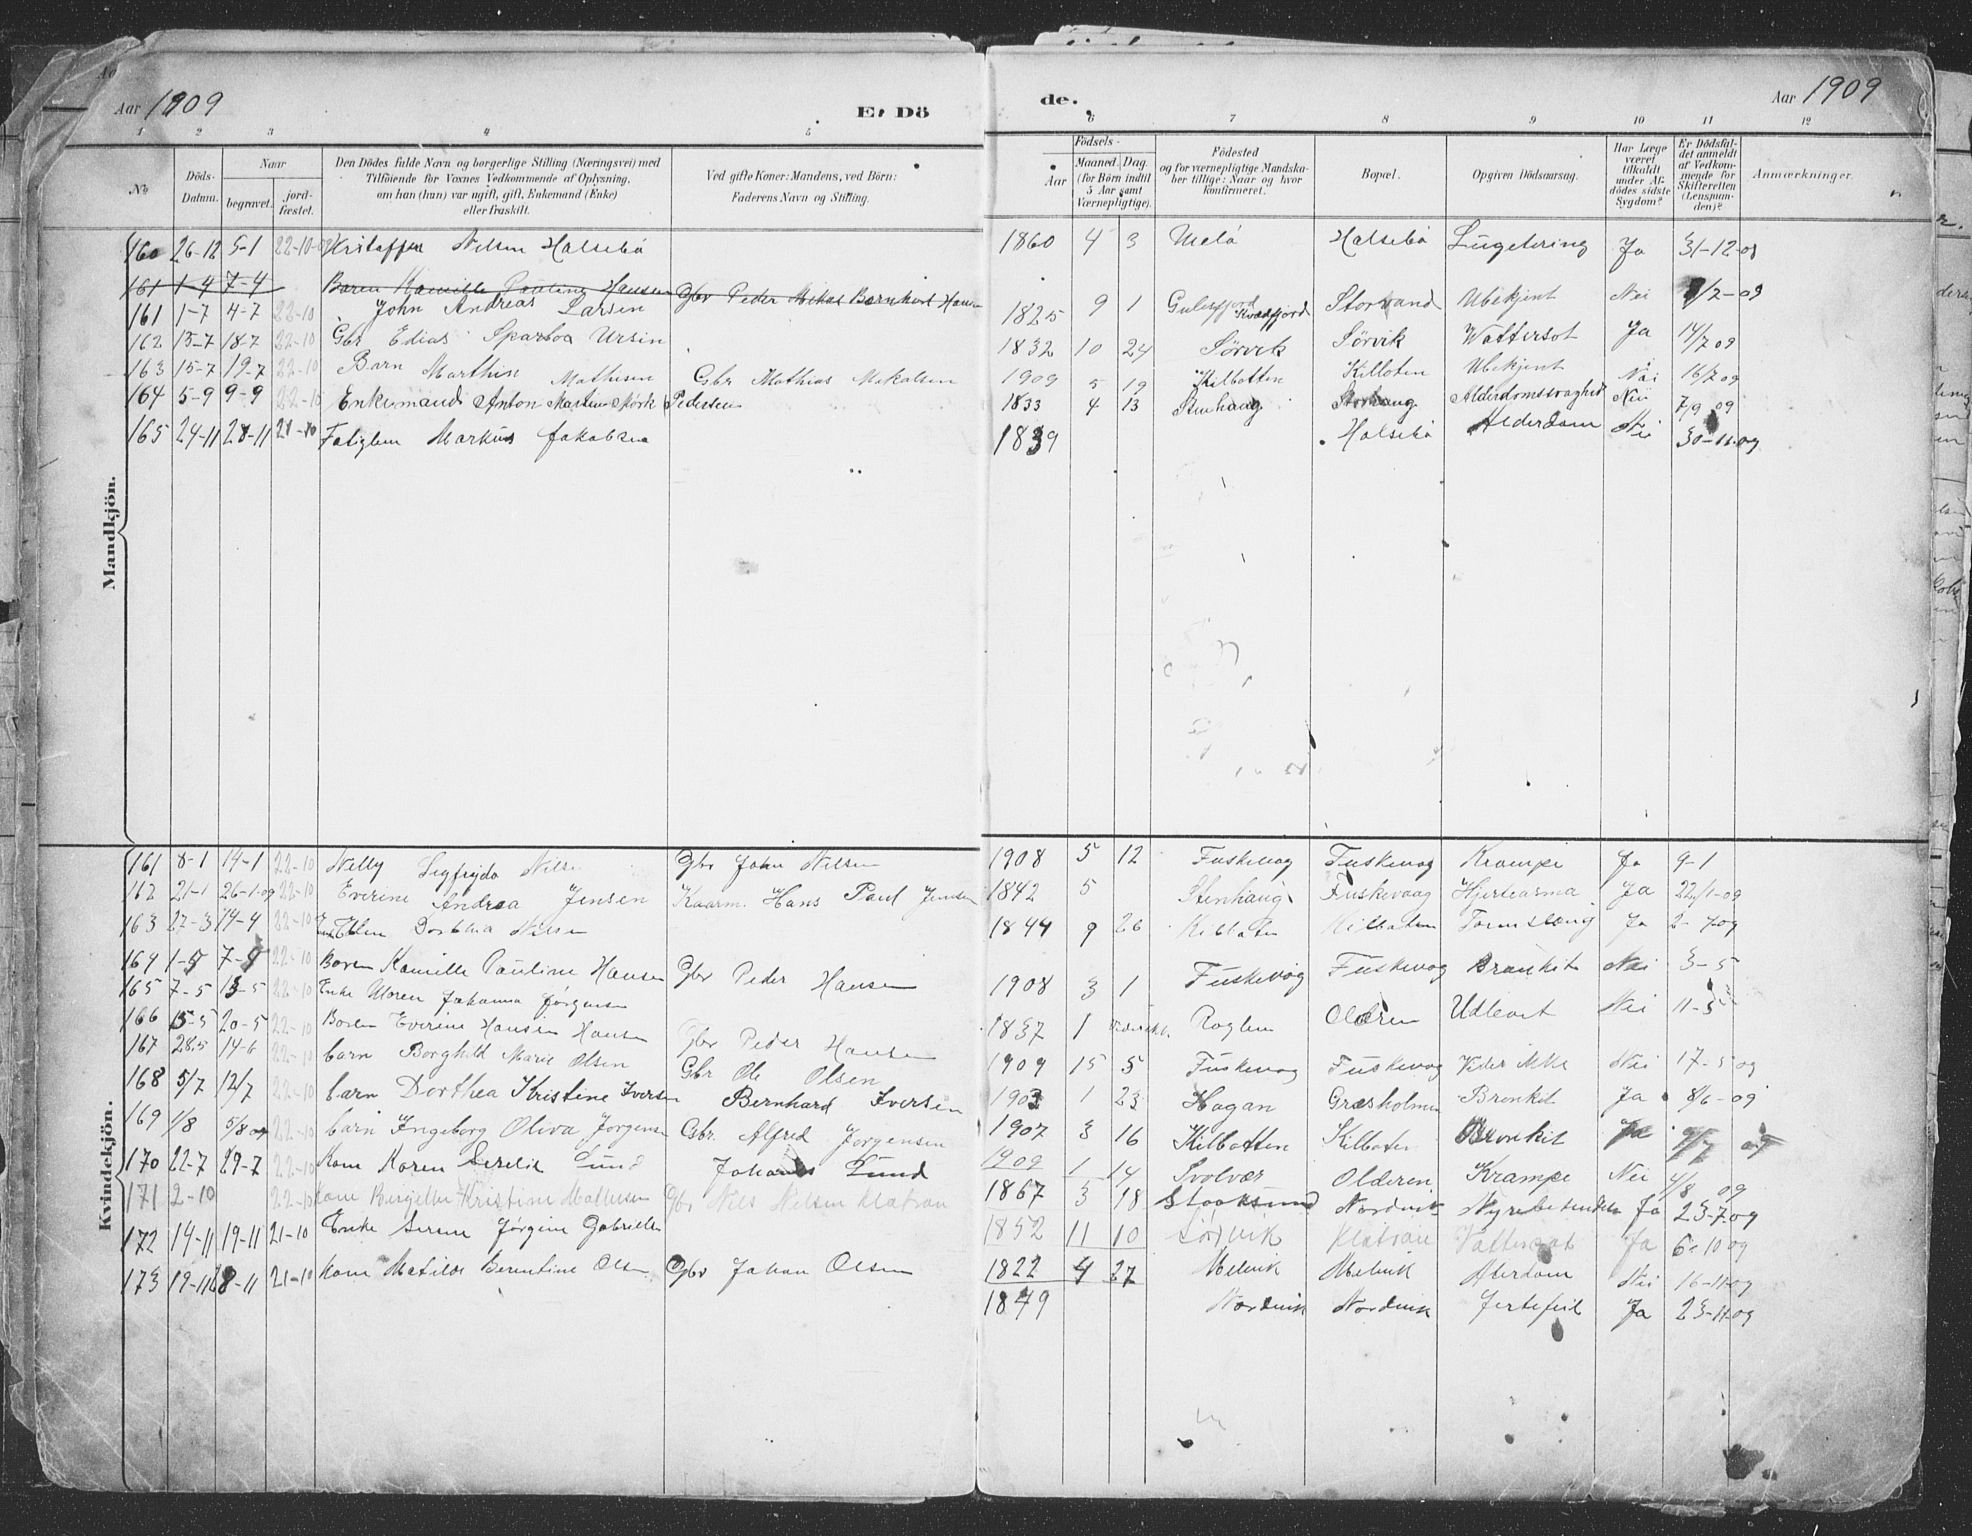 Aar 1909
E. Dö
de.
Aar 1909
1 2 3 4 5 6 7 8 9 10 11 12
No
Döds-Datum.
Naar
begravet.
jord-fæstet.
Den Dödes fulde Navn og borgerlige Stilling (Næringsvei) med
Tilföiende for Voxnes Vedkommende af Oplysning,
om han (hun) var ugift, gift, Enkemand (Enke)
eller fraskilt.
Ved gifte Koner: Mandens, ved Börn:
Faderens Navn og Stilling.
Födsels-
Aar
Maaned. Dag.
(for Börn indtil
5 Aar samt
Værnepligtige).
Födested
og for værnepligtige Mandska-
ber tillige: Naar og hvor
konfirmeret.
Bopæl.
Opgiven Dödsaarsag.
Har Læge
været
tilkaldt
under Af-
dödes sidste
Sygdom?
Er Dödsfal-
det anmeldt
af Vedkom-
mende for
Skifteretten
(Lensman-
den)?
Anmærkninger.
Mandkjön.
160 26-12 5-1 22-10-09 Kristoffer Nilsen Halsebö 1860 4 3 Melö Halsebö Lugetering Ja 31-12-09
161 1-4 7-4 Baren Kamille Pauline Hansen Gbr Peder Mikal Bernhard Hansen
161 1-7 4-7 22-10 John Andreas Larsen 1825 9 1 Gulesfjord Kvædfjord Storvand Ubekjent Nei /7-09
162 15-7 18-7 22-10 Gbr Edias Sparboe Ursin 1832 10 24 Sörvik Sörvik Wattersot Ja 17/7 09
163 15-7 19-7 22-10 Barn Marthin Mathisen Gbr Mathias Mikalsen 1909 5 19 Kilbotten Killoten Ubekjent Nei 16/7 09
164 5-9 9-9 22-10 Enkemand Anton Martin Mörk Pedersen 1833 4 13 Stenhaug Alderdomssvaghed Nei 7/9 09
165 24-11 28-11 21-10 Fatiglem Markus Jakobsen 1839 Halsebö Alderdom Nei 30-11-09
Kvindekjön.
161 8-1 14-1 22-10 Nelly Sigfrida Nils Gbr John Nilsen 1908 5 12 Fuskevog Fuskevog Krampe Ja 9-1
162 21-1 26-1-09 22-10 Everine Andrea Jensen Kaarm. Hans Paul Jensen 1842 5 Stenhaug Fuskevaag Hjertearma Ja 22/1-09
163 27-3 14-4 22-10 Ellen Dorthea Nilsen 1844 9 26 Kilbaten Kilbaten Ja 2-4-09
164 1-5 7-5 22-10 Baren Kamille Pauline Hansen Gbr Peder Hansen 1908 3 1 Fuskevog Fuskevog Bronkit Nei 3-5
165 7-5 13-5 22-10 Enke Maren Johanna Jørgensen 1837 1 Roglen Olderen Udlevet Nei 11-5
166 15-5 20-5 22-10 Baren Everine Hansine Hansen Gbr Peder Hansen 1909 15 5 Fuskevog Fuskevog Vides ikke Nei 17-5 09
167 28.5 14-6 22-10 barn Borghild Marie Olsen Gbr Ole Olsen 1903 1 23 Hagan Græsholmen Bronkit Ja 8/6-09
168 5/7 12/7 22-10 barn Dorthea Kristine Iversen Bernhard Iversen 1907 3 16 Kilbotten Kilboten Bronkit Ja 9/7 09
169 1/8 5/8 09 22-10 barn Ingeborg Oliva Jørgensen Gbr. Alfred Jørgensen 1909 1 14 Svolvær Olderen Krampe Nei 4/8 09
170 22-7 29-7 22-10 Kone Karen Serelie Lund Johannes Lund 1867 3 18 Stooksund Nordvik Nyrebetendelse Ja 23-7 09
171 2-10 22-10 Kone Bergette Kristine Mathisen Gbr Nils Nilsen Klatran 1852 11 10 Sörvik Klatran Vattersot Ja 6-10 09
172 14-11 19-11 21-10 Enke Seren Jørgine Gabrielsen 1822 4 27 Melvik Melvik Alerdom Nei 16-11-09
173 19-11 28-11 21-10 Kone Matilde Berentine Olsen Gbr Johan Olsen 1849 Nordvik Nordvik Jertefeil Ja 23-11-09